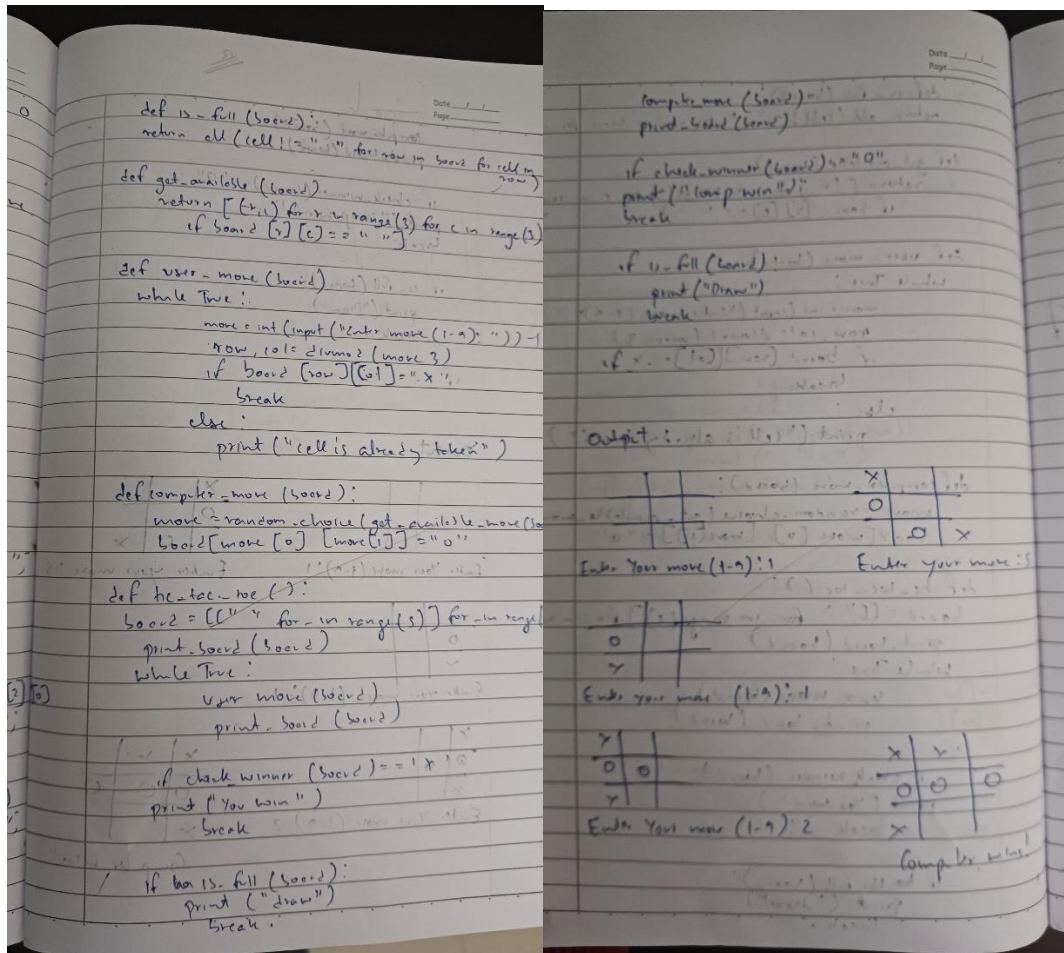 52
Date / /
Page
def is_full (board):
return all (cell != " " for row in board for cell in
row)
def get_available (board)
return [(r,c) for r in range(3) for c in range(3)
if board [r][c] == " "]
def user_move (board)
while True:
move = int(input("Enter move (1-9): ")) -1
row, col = divmod (move 3)
if board [row][col] = "x"
break
else:
print("cell is already taken")
def computer_move (board):
move = random.choice(get_available_move(boa
board[move [0] [move[1]] = "0"
def tic_tac_toe ():
board = [[" " for_in range(3)] for_in range(
print_board (board)
while True:
user move (board)
print_board (board)
if check_winner (board) == 'x'
print ("You win")
break
if is_full (board):
print ("draw")
break.
Date / /
Page
computer_move (board)
print_board (board)
if check_winner (board) == "0"
print("comp win")
break
if is_full (board):
print("Draw")
break
if
Output:
X
0
0 X
Enter Your move (1-9): 1
Enter your move: 5
0
X
Enter your move (1-9): 1
X
0 0
X
X X
0 0 0
X
Enter Your move (1-9): 2
Computer wins!